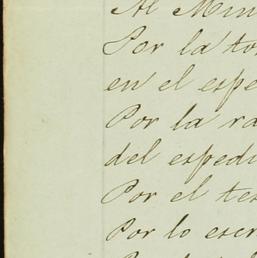 Al Min
Por la to
en el espe
Por la ra
del espedi
Por el tes
Por lo escr